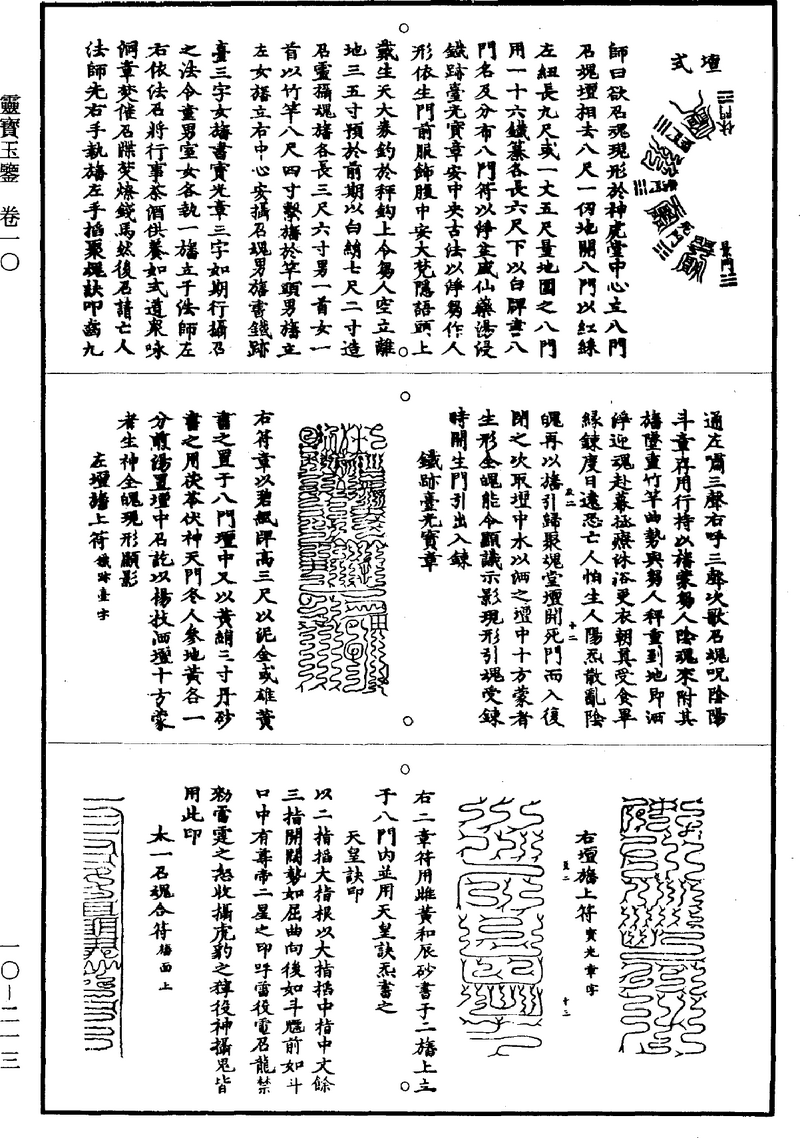 靈寶玉鑒 卷一〇
一〇-二一三
壇式
休門
景門
師曰欲召魂現形於神虎堂中心立八門
召魂壇相去八尺一仞地開八門以紅綵
左紐長九尺或一丈五尺量地圖之八門
用一十六鐵纂各長六尺下以白牌書八
門名及分布八門符以淨盆盛仙藥湯浸
鐵跡臺光寶章安中央古法以淨芻作人
形依生門前服飾腹中安大梵隱語頭上
戴生天大券鈎於秤鈎上令芻人空立離
地三五寸預於前期以白絹七尺二寸造
召靈攝魂旛各長三尺六寸男一首女一
首以竹竿八尺四寸擊旛於竿頭男旛立
左女旛立右中心安攝召魂男旛書鐵跡
臺三字女旛書寶光章三字如期行攝召
之法令童男室女各執一旛立于法師左
右依法召將行事茶酒供養如式道衆咏
洞章焚催召牒焚燎錢馬然後召請亡人
法師先右手執旛左手掐聚魂訣叩齒九
通左嘯三聲右呼三聲次歌召魂呪陰陽
斗章存用行持以旛蒙芻人陰魂來附其
旛墜重竹竿曲勢與芻人秤重到地即洒
淨迎魂赴幕拯療沐浴更衣朝真受食畢
緣鍊度日遠恐亡人怕生人陽炁散亂陰
魄再以旛引歸聚魂堂壇開死門而入復
閉之次取壇中水以洒之壇中十方蒙者
生形全魄能令顯識示影現形引魂受鍊
時開生門引出入鍊
鐵跡臺光寶章
右符章以碧紙牌高三尺以泥金或雄黃
書之置于八門壇中又以黃絹三寸丹砂
書之用茯苓伏神天門冬人參地黃各一
分煎湯置壇中召訖以楊枝洒壇十方蒙
者生神全魄現形顯影
左壇旛上符 鐵跡臺字
右壇旛上符 寶光章字
右二章符用雌黃和辰砂書于二旛上立
于八門內並用天皇訣炁書之
天皇訣印
以二指掐大指根以大指掐中指中文餘
三指開闊勢如屈曲向後如斗魁前如斗
口中有尊帝二星之印呼雷役電召龍禁
勑雷霆之怒收攝虎豹之獰役神攝鬼皆
用此印
太一召魂合符 旛面上